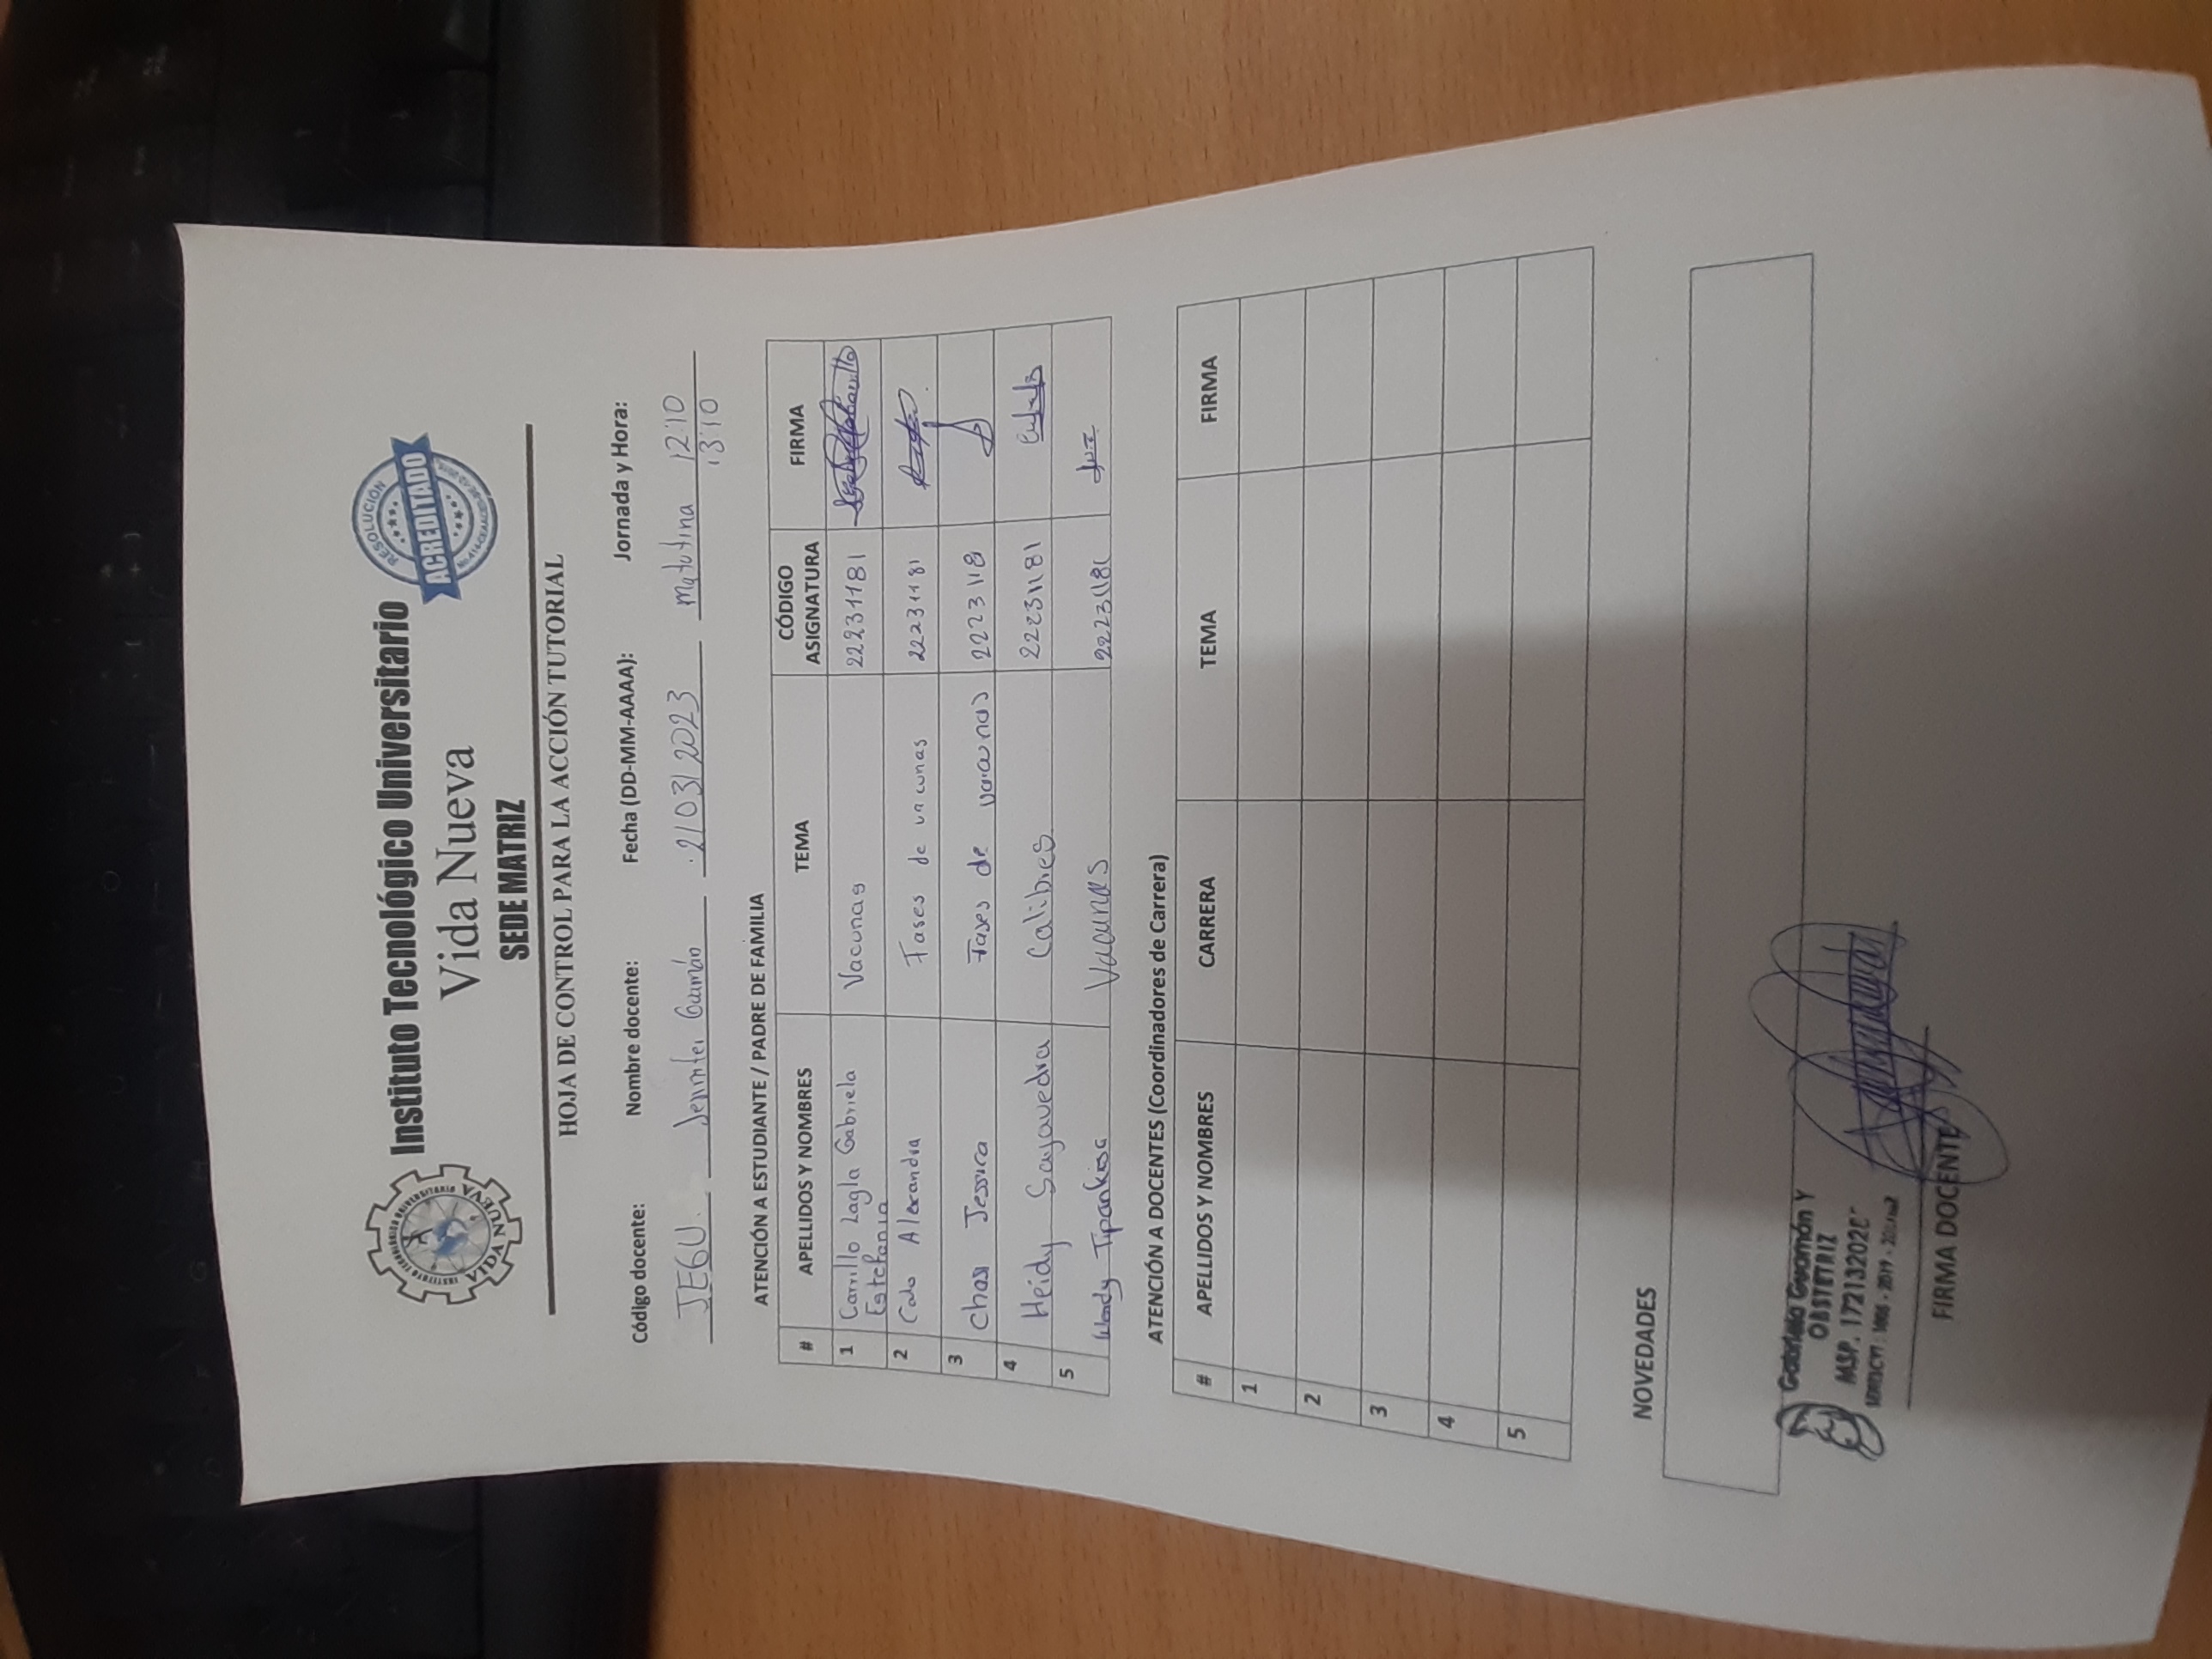 INSTITUTO TECNOLÓGICO UNIVERSITARIO
VIDA NUEVA
Instituto Tecnológico Universitario
Vida Nueva
SEDE MATRIZ
RESOLUCIÓN
ACREDITADO
HOJA DE CONTROL PARA LA ACCIÓN TUTORIAL
Código docente: Nombre docente: Fecha (DD-MM-AAAA): Jornada y Hora:
JEGU. Jennifer Guamán 21 03 2023 Matutina 12:10
13:10
ATENCIÓN A ESTUDIANTE / PADRE DE FAMILIA
# APELLIDOS Y NOMBRES TEMA CÓDIGO ASIGNATURA FIRMA
1 Carrillo Lagla Gabriela Estefania Vacunas 22231181
2 Alexandra Fases de vacunas 22231181
3 Jessica Fases de vacunas 2223118
4 Heidy Sajavedra Calibres 22231181
5 Wendy Vacunas 22231181
ATENCIÓN A DOCENTES (Coordinadores de Carrera)
# APELLIDOS Y NOMBRES CARRERA TEMA FIRMA
1
2
3
4
5
NOVEDADES
Gabriela Guamán Y
OBSTETRIZ
MSP.
FIRMA DOCENTE